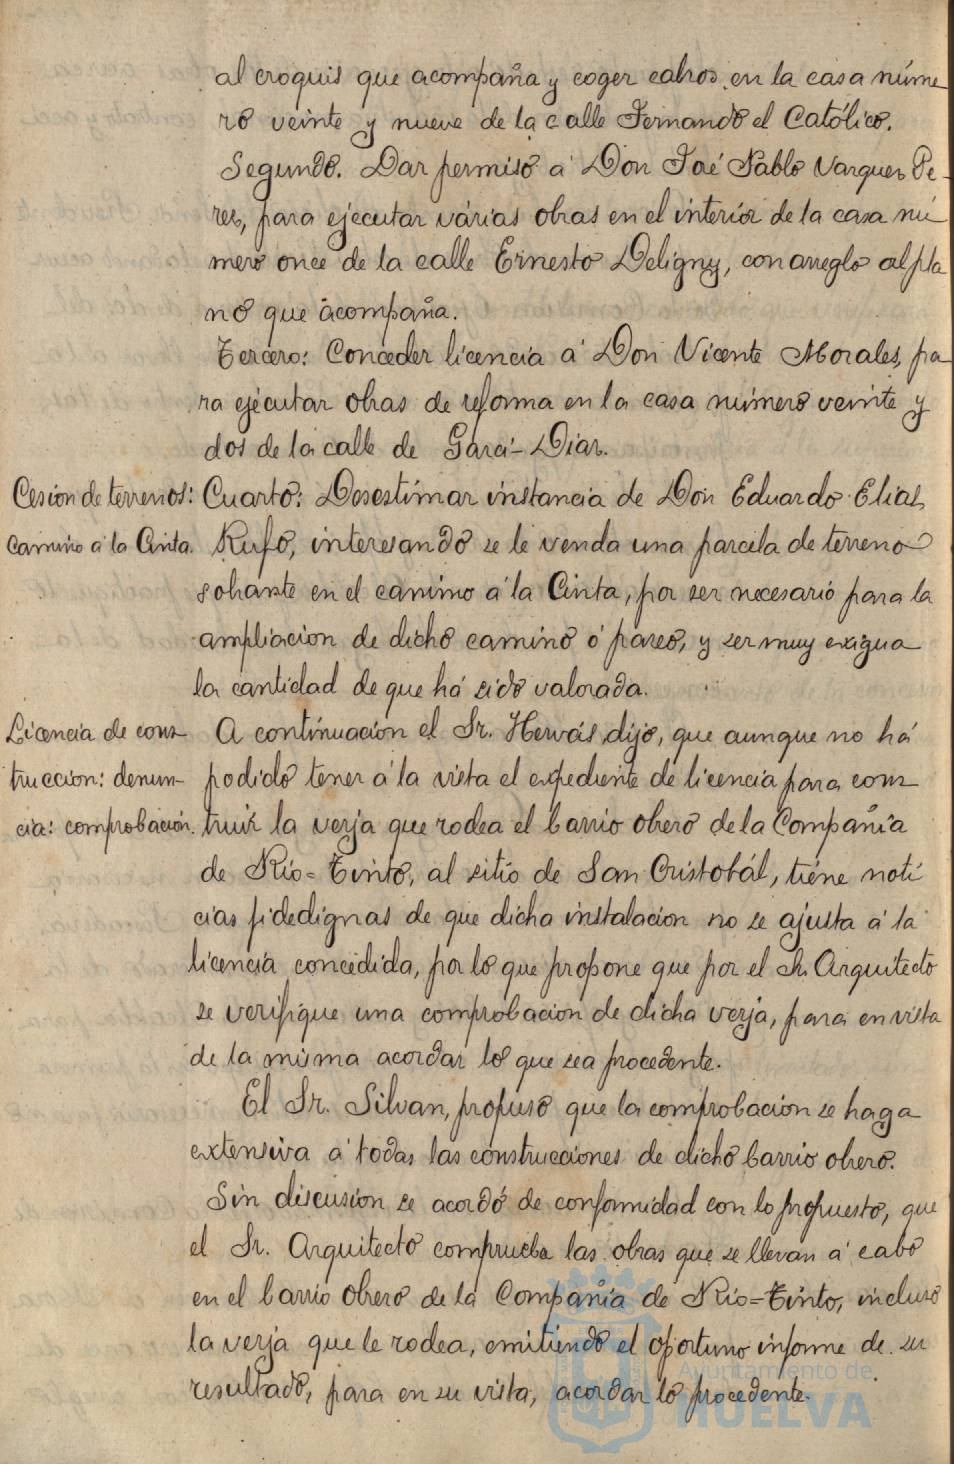 al croquis que acompaña y coger calros en la casa núme-
ro veinte y nueve de la calle Fernando el Católico.
Segundo. Dar permiso á Don José Pablo Varquez Pe-
rez, para ejecutar várias obras en el interiór de la casa nú-
mero once de la calle Ernesto Deligny, con arreglo al pla
no que acompaña.
Tercero: Conceder licencia á Don Vicente Morales, pa
ra ejecutar obras de reforma en la casa número veinte y
dos de la calle de Garci-Diaz.
Cesion de terrenos:
Camino á la Cinta.
Cuarto: Desestimar instancia de Don Eduardo Elias
Rufo, interesando se le venda una parcela de terreno
sobrante en el camino á la Cinta, por ser necesario para la
ampliacion de dicho camino ó paseo, y ser muy exigua
la cantidad de que há sido valorada.
Licencia de cons-
truccion: denun-
cia: comprobación.
A continuación el Sr. Hervás dijo, que aunque no há
podido tener á la vista el expediente de licencia para cons-
truir la verja que rodea el barrio obrero de la Compañia
de Rio=Tinto, al sitio de San Cristobál, tiene noti
cias fidedignas de que dicha instalacion no se ajusta á la
licencia concedida, por lo que propone que por el Sr. Arquitecto
se verifique una comprobacion de dicha verja, para en vista
de la misma acordar lo que sea procedente.
El Sr. Silvan, propuso que la comprobacion se haga
extensiva á todas las construcciones de dicho barrio obrero.
Sin discusion se acordó de conformidad con lo propuesto, que
el Sr. Arquitecto compruebe las obras que se llevan á cabo
en el barrio Obrero de la Compañia de Rio=Tinto, incluso
la verja que le rodea, emitiendo el oportuno informe de su
resultado, para en su vista, acordar lo procedente.
Ayuntamiento de
HUELVA